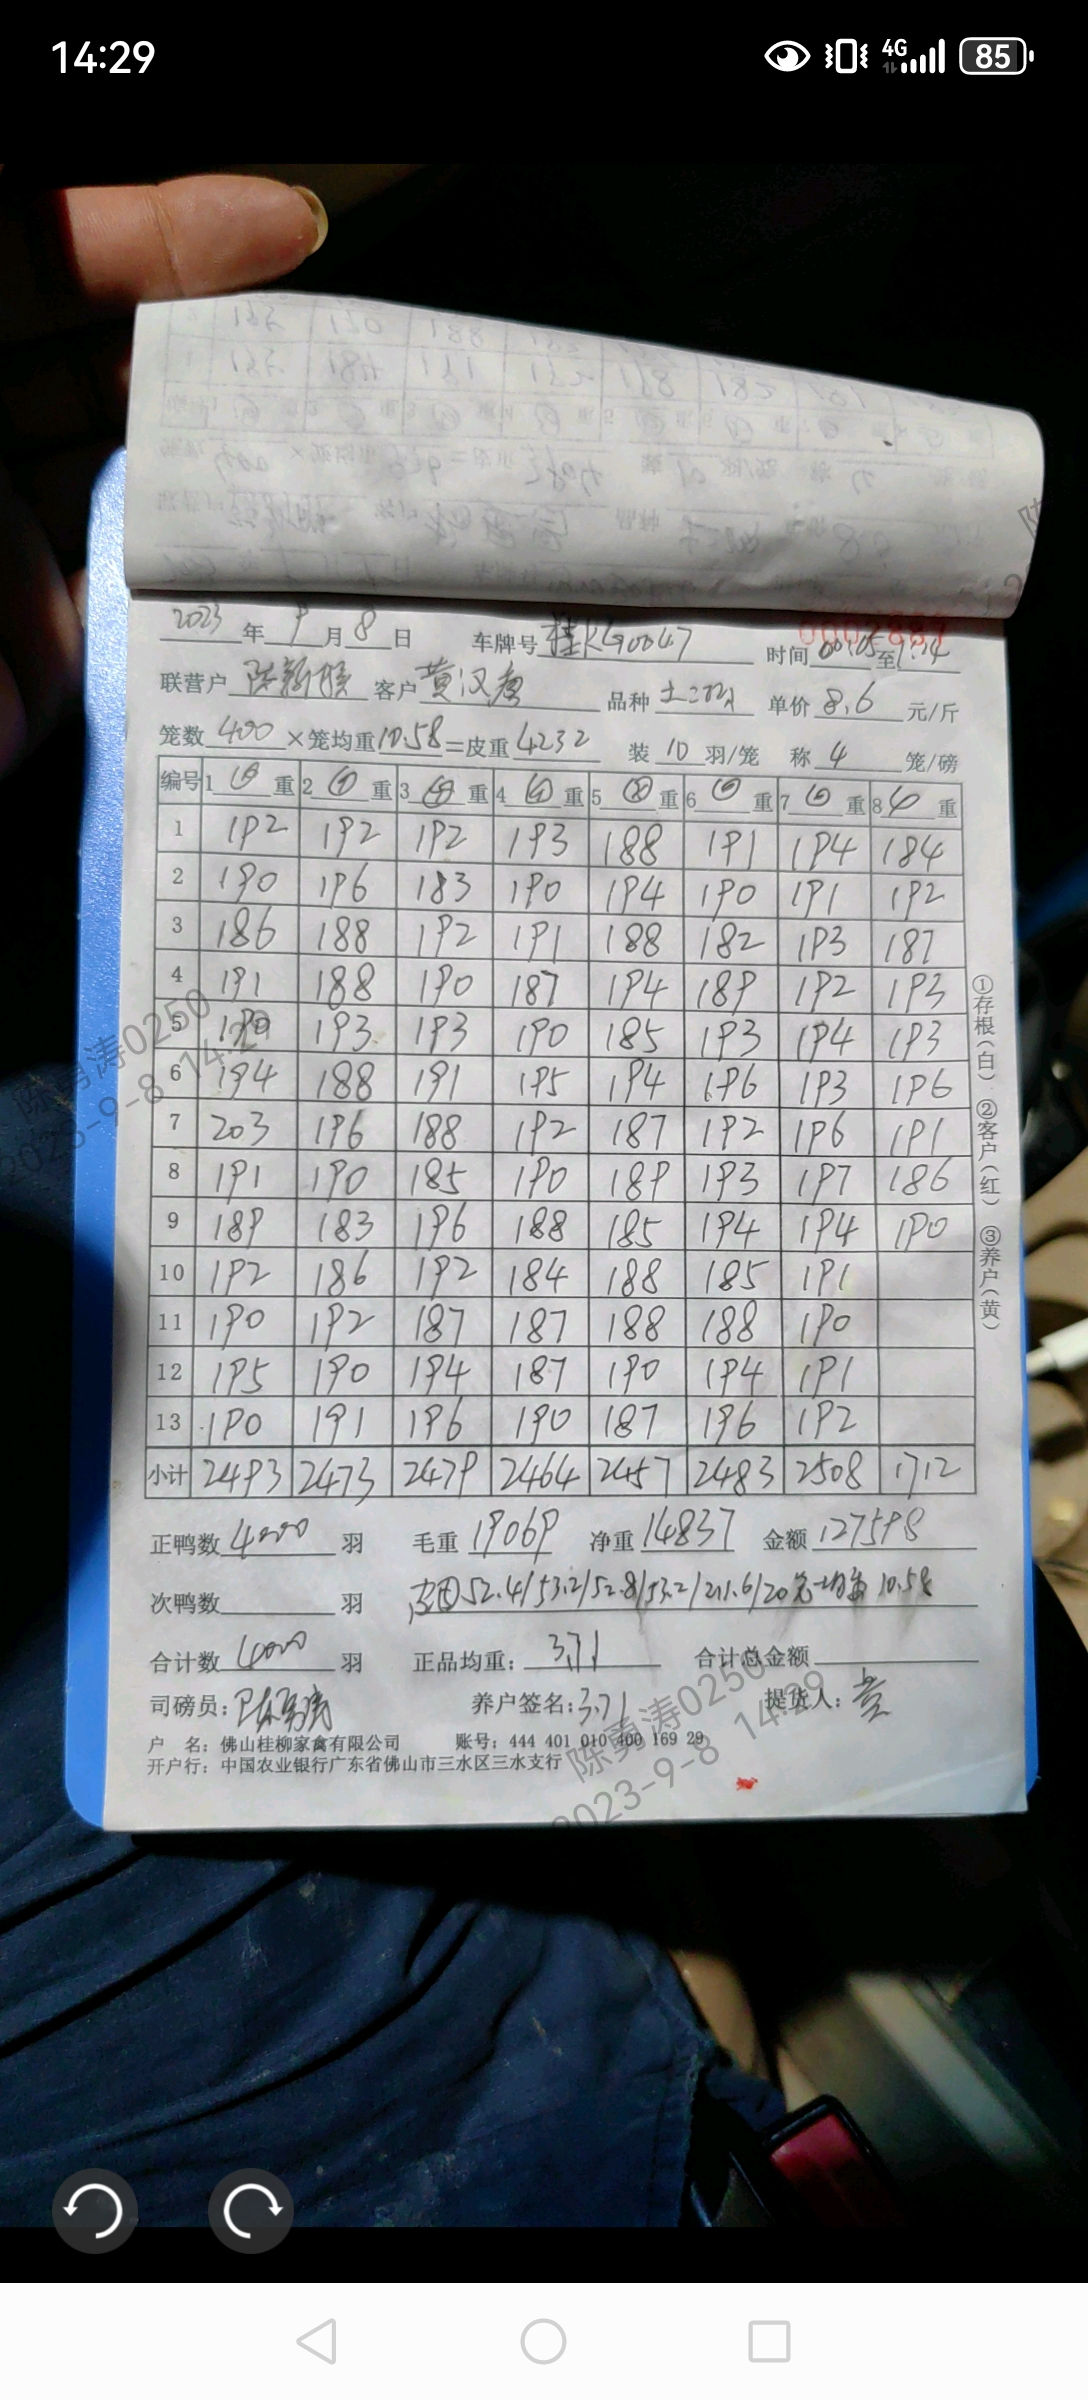 14:29
4G 85
2023 年 9 月 8 日 车牌号 桂KG0047 时间 00:05 至 1:14
联营户 客户 黄汉 品种 土二 单价 8.6 元/斤
笼数 400 ×笼均重 10.58 =皮重 4232 装 10 羽/笼 称 4 笼/磅
编号 1 重 2 重 3 重 4 重 5 重 6 重 7 重 8 重
1 192 192 192 193 188 191 194 184
2 190 196 183 190 194 190 191 192
3 186 188 192 191 188 182 193 187
4 191 188 190 187 194 189 192 193
5 190 193 193 190 185 193 194 193
6 194 188 191 195 194 196 193 196
7 203 196 188 192 187 192 196 191
8 191 190 185 190 189 193 197 186
9 189 183 196 188 185 194 194 190
10 192 186 192 184 188 185 191
11 190 192 187 187 188 188 190
12 195 190 194 187 190 194 191
13 190 191 196 190 187 196 192
小计 2493 2473 2479 2464 2457 2483 2508 1712
①存根(白) ②客户(红) ③养户(黄)
正鸭数 4000 羽 毛重 19069 净重 14837 金额 127598
次鸭数 羽 52.4/53.2/52.8/53.2/211.6/20笼 均重 10.58
合计数 4000 羽 正品均重: 3.71 合计总金额
司磅员: 陈勇涛 养户签名: 3.71 提货人: 黄
户 名: 佛山桂柳家禽有限公司 账号: 444 401 010 400 169 29
开户行: 中国农业银行广东省佛山市三水区三水支行
陈勇涛0250
2023-9-8 14:29
陈勇涛0250
2023-9-8 14:29